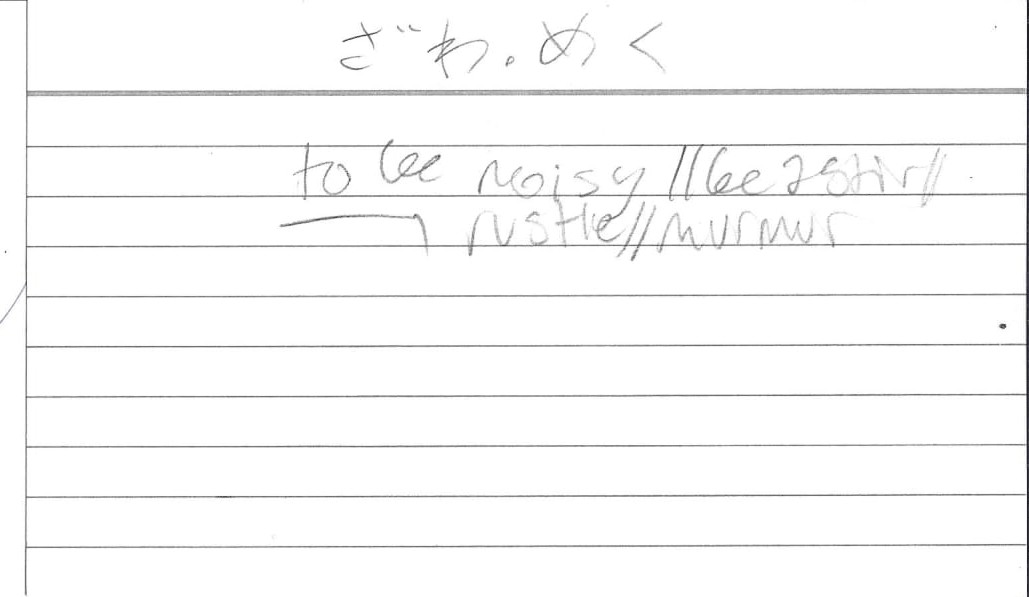 ざわ.めく
to be noisy // be astir //
rustle // murmur